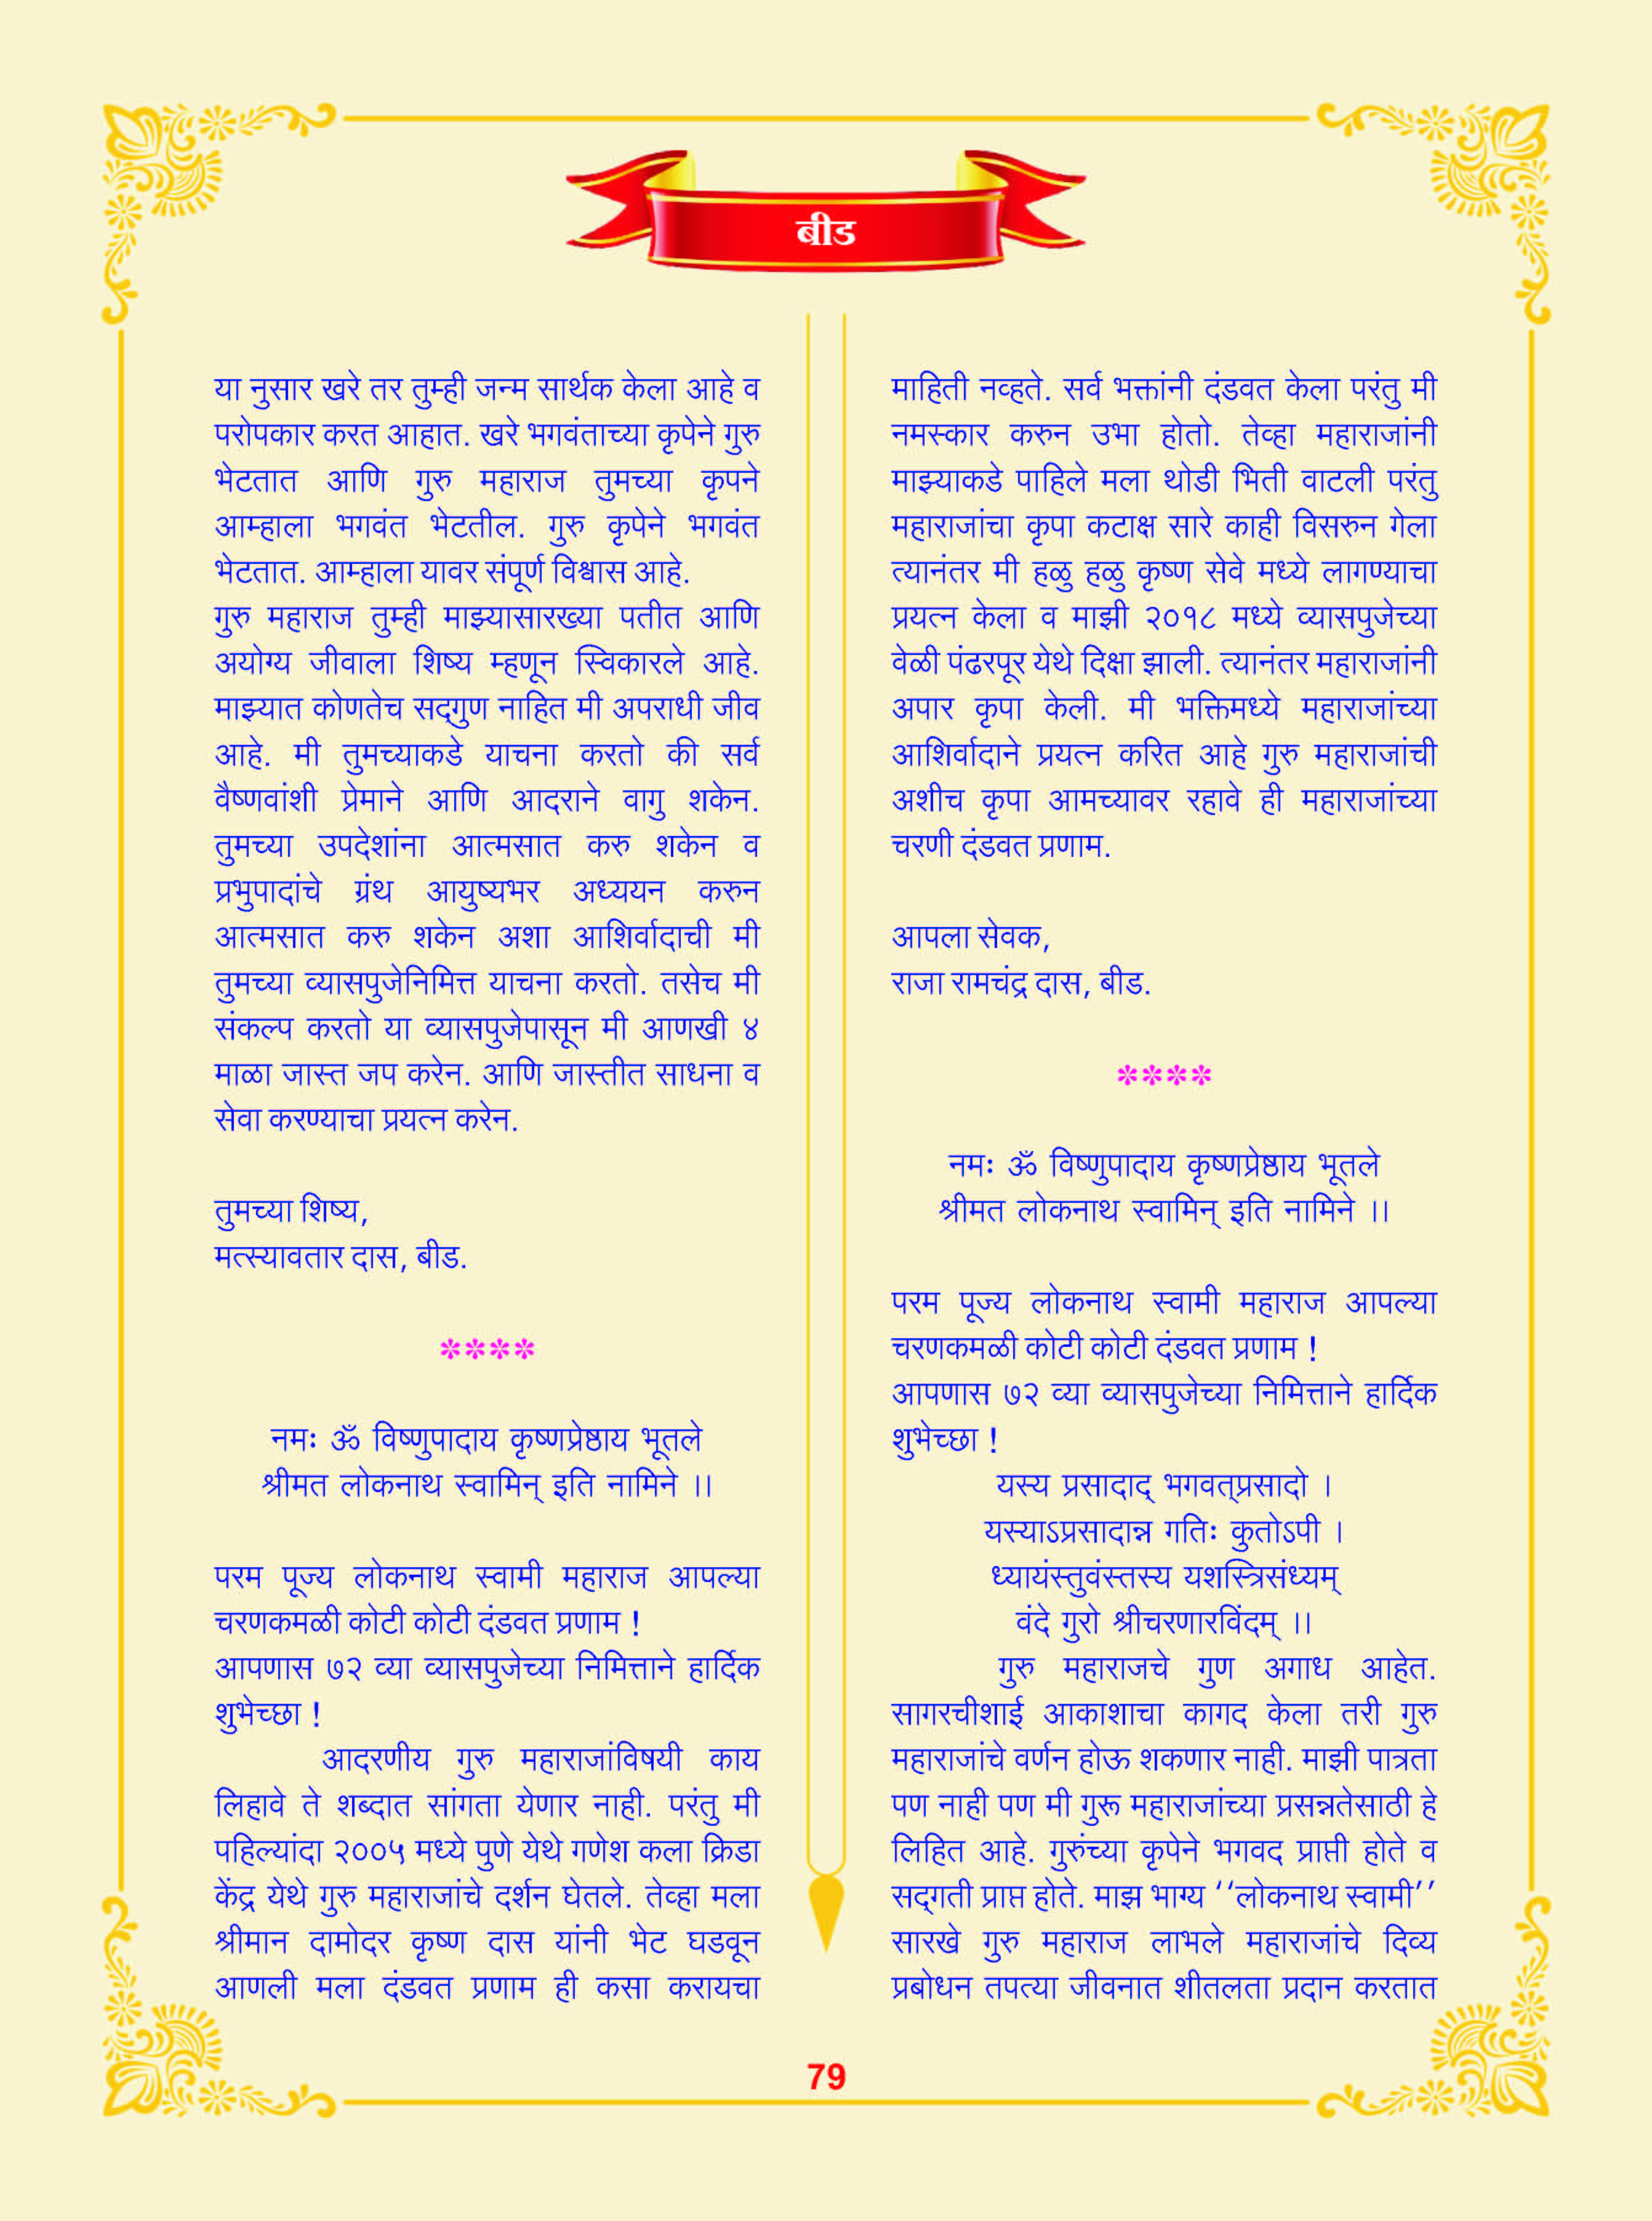 बीड
या नुसार खरे तर तुम्ही जन्म सार्थक केला आहे व
परोपकार करत आहात. खरे भगवंताच्या कृपेने गुरु
भेटतात आणि गुरु महाराज तुमच्या कृपने
आम्हाला भगवंत भेटतील. गुरु कृपेने भगवंत
भेटतात. आम्हाला यावर संपूर्ण विश्वास आहे.
गुरु महाराज तुम्ही माझ्यासारख्या पतीत आणि
अयोग्य जीवाला शिष्य म्हणून स्विकारले आहे.
माझ्यात कोणतेच सद्‌गुण नाहित मी अपराधी जीव
आहे. मी तुमच्याकडे याचना करतो की सर्व
वैष्णवांशी प्रेमाने आणि आदराने वागु शकेन.
तुमच्या उपदेशांना आत्मसात करु शकेन व
प्रभुपादांचे ग्रंथ आयुष्यभर अध्ययन करुन
आत्मसात करु शकेन अशा आशिर्वादाची मी
तुमच्या व्यासपुजेनिमित्त याचना करतो. तसेच मी
संकल्प करतो या व्यासपुजेपासून मी आणखी ४
माळा जास्त जप करेन. आणि जास्तीत साधना व
सेवा करण्याचा प्रयत्न करेन.
तुमच्या शिष्य,
मत्स्यावतार दास, बीड.
****
नमः ॐ विष्णुपादाय कृष्णप्रेष्ठाय भूतले
श्रीमत लोकनाथ स्वामिन् इति नामिने ।।
परम पूज्य लोकनाथ स्वामी महाराज आपल्या
चरणकमळी कोटी कोटी दंडवत प्रणाम !
आपणास ७२ व्या व्यासपुजेच्या निमित्ताने हार्दिक
शुभेच्छा !
आदरणीय गुरु महाराजांविषयी काय
लिहावे ते शब्दात सांगता येणार नाही. परंतु मी
पहिल्यांदा २००५ मध्ये पुणे येथे गणेश कला क्रिडा
केंद्र येथे गुरु महाराजांचे दर्शन घेतले. तेव्हा मला
श्रीमान दामोदर कृष्ण दास यांनी भेट घडवून
आणली मला दंडवत प्रणाम ही कसा करायचा
माहिती नव्हते. सर्व भक्तांनी दंडवत केला परंतु मी
नमस्कार करुन उभा होतो. तेव्हा महाराजांनी
माझ्याकडे पाहिले मला थोडी भिती वाटली परंतु
महाराजांचा कृपा कटाक्ष सारे काही विसरुन गेला
त्यानंतर मी हळु हळु कृष्ण सेवे मध्ये लागण्याचा
प्रयत्न केला व माझी २०१८ मध्ये व्यासपुजेच्या
वेळी पंढरपूर येथे दिक्षा झाली. त्यानंतर महाराजांनी
अपार कृपा केली. मी भक्तिमध्ये महाराजांच्या
आशिर्वादाने प्रयत्न करित आहे गुरु महाराजांची
अशीच कृपा आमच्यावर रहावे ही महाराजांच्या
चरणी दंडवत प्रणाम.
आपला सेवक,
राजा रामचंद्र दास, बीड.
****
नमः ॐ विष्णुपादाय कृष्णप्रेष्ठाय भूतले
श्रीमत लोकनाथ स्वामिन् इति नामिने ।।
परम पूज्य लोकनाथ स्वामी महाराज आपल्या
चरणकमळी कोटी कोटी दंडवत प्रणाम !
आपणास ७२ व्या व्यासपुजेच्या निमित्ताने हार्दिक
शुभेच्छा !
यस्य प्रसादाद् भगवत्‌प्रसादो ।
यस्याऽप्रसादान्न गतिः कुतोऽपी ।
ध्यायंस्तुवंस्तस्य यशस्त्रिसंध्यम्
वंदे गुरो श्रीचरणारविंदम् ।।
गुरु महाराजचे गुण अगाध आहेत.
सागरचीशाई आकाशाचा कागद केला तरी गुरु
महाराजांचे वर्णन होऊ शकणार नाही. माझी पात्रता
पण नाही पण मी गुरू महाराजांच्या प्रसन्नतेसाठी हे
लिहित आहे. गुरुंच्या कृपेने भगवद प्राप्ती होते व
सद्‌गती प्राप्त होते. माझ भाग्य ‘‘लोकनाथ स्वामी’’
सारखे गुरु महाराज लाभले महाराजांचे दिव्य
प्रबोधन तपत्या जीवनात शीतलता प्रदान करतात
79